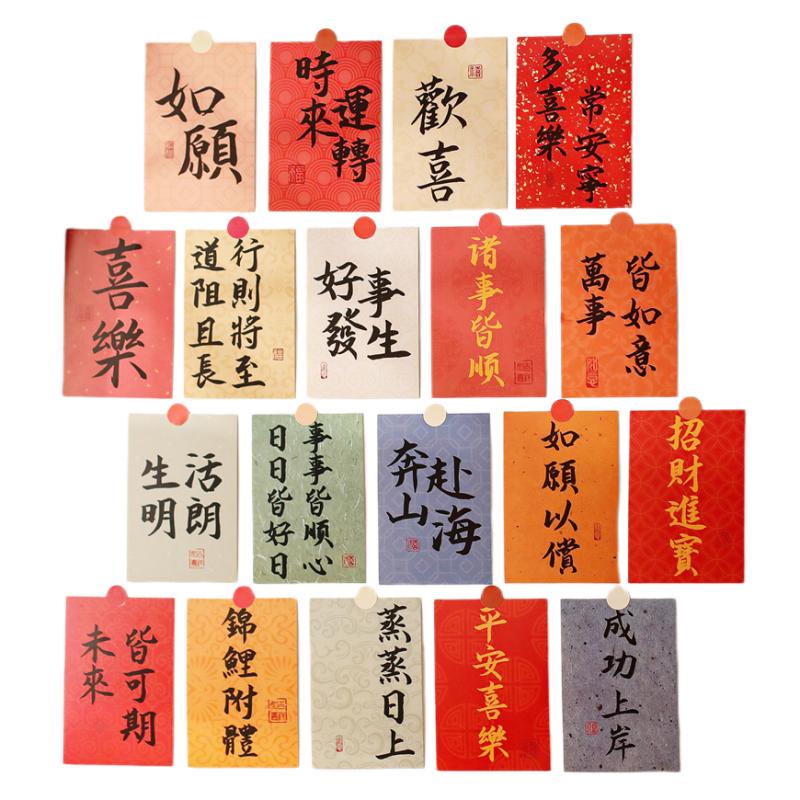 如願
時來
運轉
歡喜
多喜樂
常安寧
喜樂
道阻且長
行則將至
好事
發生
诸事皆顺
萬事
皆如意
生活
明朗
日日皆好日
事事皆順心
奔山
赴海
如願以償
招財進寶
未來
皆可期
錦鯉附體
蒸蒸日上
平安喜樂
成功上岸